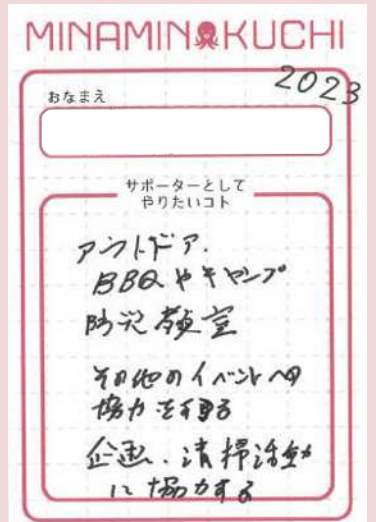 MINAMINOKUCHI
2023
おなまえ
サポーターとして
やりたいコト
アウトドア.
BBQやキャンプ
防災教室
その他のイベントへの
協力をする
企画、清掃活動
に協力する